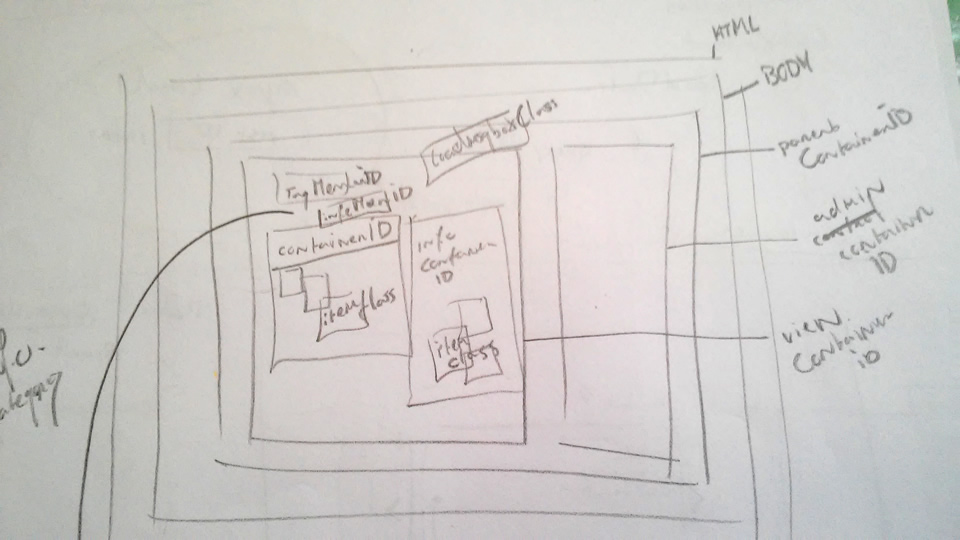 HTML
BODY
parent
ContainerID
admin
container
ID
view
Container
iD
LoadingboxClass
TagMenuID
InfoMenuiD
containerID
itemClass
info
container
ID
item
class